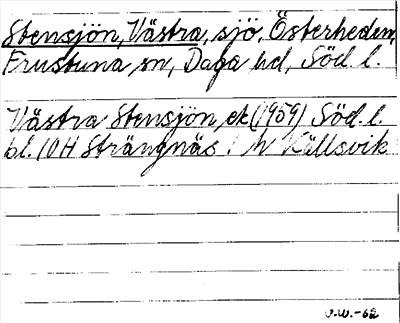 Stensjön, Västra, sjö, Österheden,
Frustuna sn, Daga hd, Söd. l.
Västra Stensjön, ek (1959) Söd. l.
bl. 10H Strängnäs. N Källsvik
O.W.-62